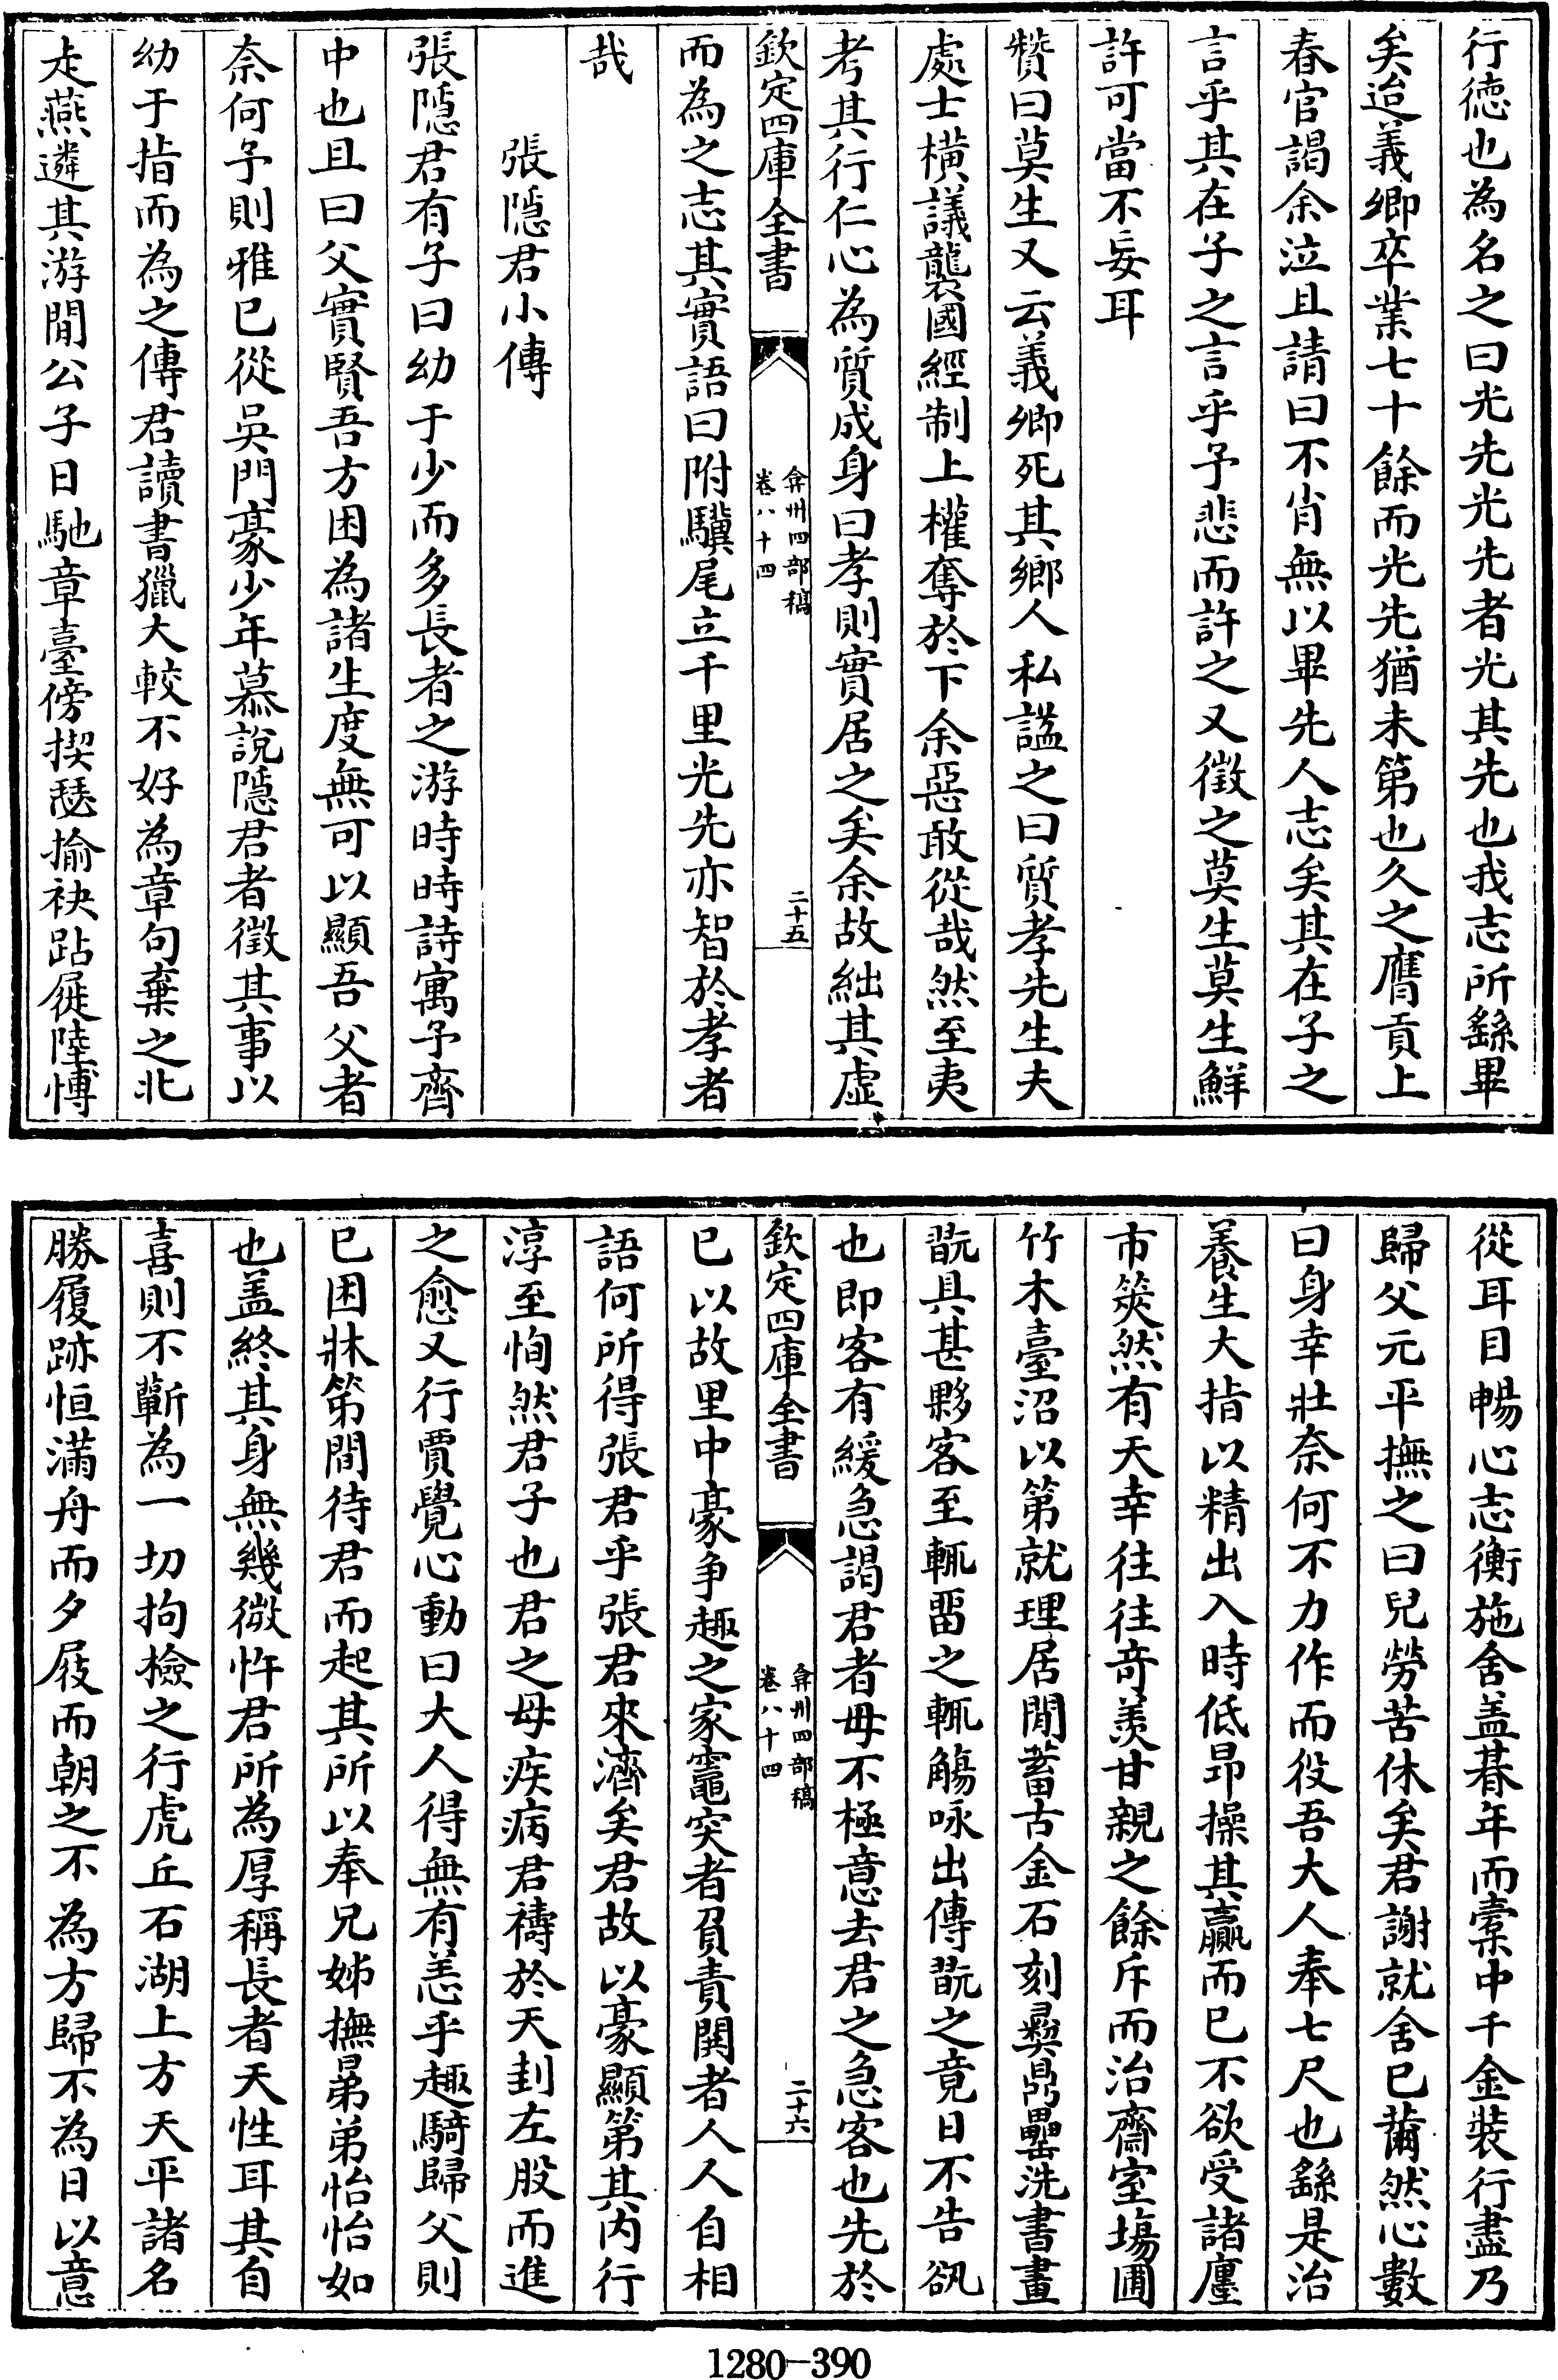 行徳也為名之曰光先光先者光其先也我志所繇畢
矣迨義卿卒業七十餘而光先猶未第也久之膺貢上
春官謁余泣且請曰不肖無以畢先人志矣其在子之
言乎其在子之言乎予悲而許之又徵之莫生莫生鮮
許可當不妄耳
贊曰莫生又云義卿死其鄉人私諡之曰質孝先生夫
處士橫議龍袞國經制上權奪於下余惡敢從哉然至夷
考其行仁心為質成身曰孝則實居之矣余故絀其虛
欽定四庫全書
弇州四部稿
卷八十四
二十五
而為之志其實語曰附驥尾立千里光先亦智於孝者
哉
張隱君小傳
張隱君有子曰幼于少而多長者之游時時詩寓予齊
中也且曰父實賢吾方困為諸生度無可以顯吾父者
奈何予則雅已從吳門豪少年慕說隱君者徵其事以
幼于指而為之傳君讀書獵大較不好為章句棄之北
走燕遴其游閒公子日馳章臺傍揳瑟揄袂跕屣陸慱
從耳目暢心志衡施舍盖朞年而橐中千金裝行盡乃
歸父元平撫之曰兒勞苦休矣君謝就舍已薾然心數
曰身幸壯奈何不力作而役吾大人奉七尺也繇是治
養生大指以精出入時低昂操其贏而已不欲受諸廛
市筴然有天幸往往竒羨甘親之餘斥而治齋室塲圃
竹木臺沼以第就理居閒蓄古金石刻彛鼎罍洗書畫
翫具甚夥客至輒畱之輒觴咏出傳翫之竟日不告㰸
也即客有緩急謁君者毋不極意去君之急客也先於
欽定四庫全書
弇州四部稿
卷八十四
二十六
已以故里中豪争趣之家竈突者負責閧者人人自相
語何所得張君乎張君來濟矣君故以豪顯第其内行
淳至恂然君子也君之母疾病君禱於天刲左股而進
之愈又行賈覺心動曰大人得無有恙乎趣騎歸父則
已困牀第間待君而起其所以奉兄姊撫晜弟怡怡如
也盖終其身無幾微忤君所為厚稱長者天性耳其自
喜則不蘄為一切拘檢之行虎丘石湖上方天平諸名
勝履跡恒滿舟而夕屐而朝之不為方歸不為日以意
1280—390